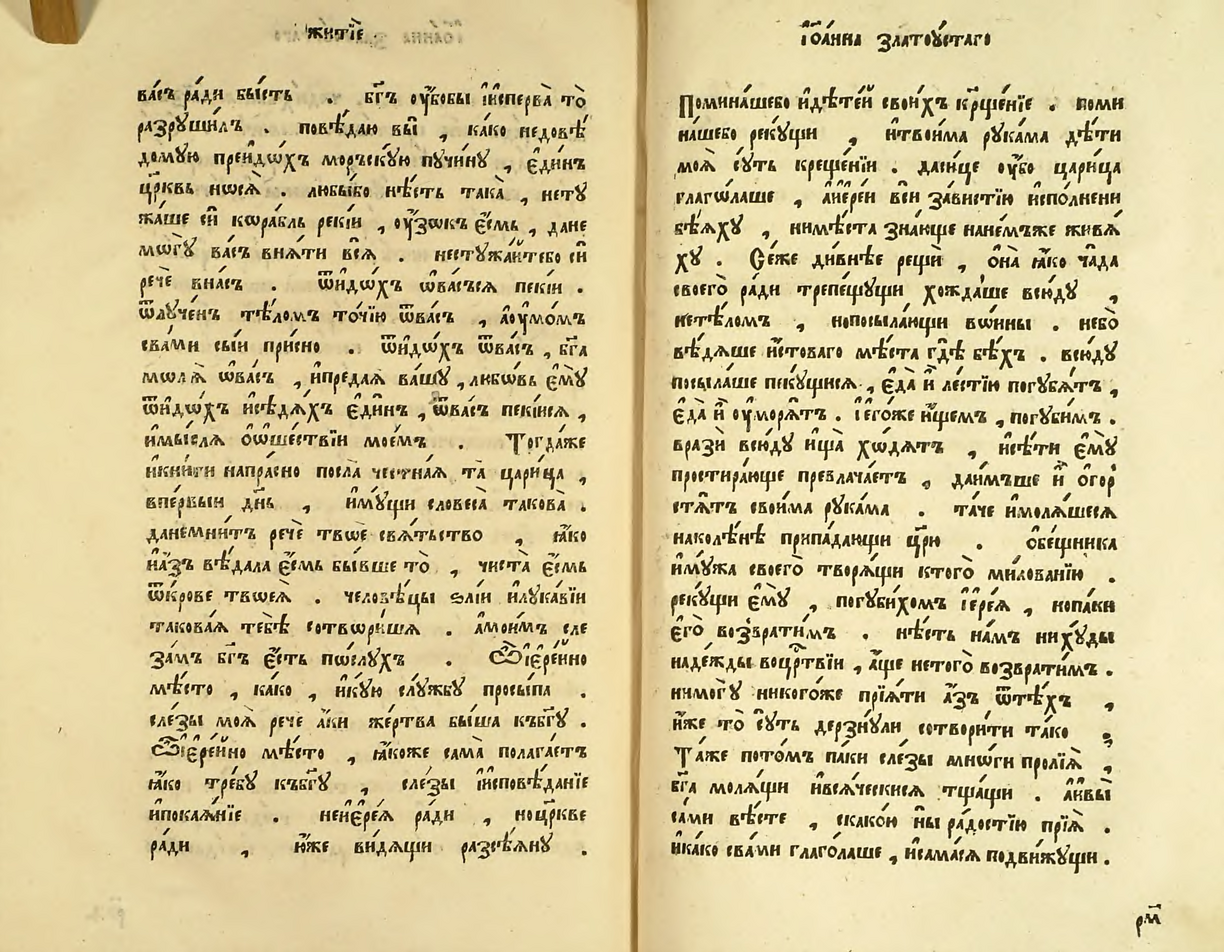 житїѐ
ва́съ ра́ди бы́сть . бг҃ъ ᲂу҆́бобы и҆испе́рва то̀
разрꙋши́лъ . повѣ́даю вы̀ , ка́ко недовѣ́
до́мꙋю преидо́хъ мо́рьскꙋю пꙋчи́нꙋ , є҆ди́нъ
цр҃квь носѧ̀ . любы́бо нѣ́сть така̀ , нетꙋ
жа́ше сѝ кѡра́бль реки́и , ᲂу҆́зокъ є҆́смь , дане
мѡгꙋ̀ ва́съ внѧ́ти всѧ̀ . нестꙋжа́йтебо сѝ
речѐ вна́съ . ѿидо́хъ ѡва́съсѧ пекі́и .
ѿлꙋче́нъ тѣ́ломъ то́чїю ѿва́съ , аᲂумо́мъ
сва́ми сы́и при́сно . ѿидо́хъ ѿва́съ , бг҃а
молѧ̀ ѡва́съ , и҆предаѧ̀ ва́шꙋ , любо́вь є҆мꙋ̀
ѿидо́хъ и҆сѣдѧ́хъ є҆ди́нъ , ѡва́съ пекі́исѧ ,
и҆мы́слѧ ѻ҆ѡшествїи мое́мъ . Тогда́же
и҆кни́ги напра́сно посла̀ честна́ѧ та̀ цари́ца ,
впе́рвыи дн҃ь , и҆мꙋщи словеса̀ такова̀ .
данемни́тъ речѐ твоѐ свѧ́тьство , ꙗ҆́ко
и҆а҆́зъ вѣ́дала є҆́смь бы́вше то̀ , чиста̀ є҆́смь
ѿкро́ве твоеѧ̀ . человѣ́цы ѕлі́и и҆лꙋка́вїи
такова́ѧ тебѣ̀ сотвори́шѧ . а҆мои́мъ сле
за́мъ бг҃ъ є҆́сть по́слꙋхъ . Ѽїере́йно
мѣ́сто , ка́ко , и҆кꙋ́ю слꙋ́жбꙋ просы́па .
сле́зы моѧ̀ речѐ а҆́ки же́ртва бы́ша къбг҃ꙋ .
Ѽїере́йно мѣ́сто , ꙗ҆́коже сама̀ полага́етъ
ꙗ҆́ко тре́бꙋ къбг҃ꙋ , сле́зы и҆исповѣ́данїе
и҆покаѧ́нїе . неи҆ере́ѧ ра́ди , ноцр҃кве
ра́ди , ю҆́же ви́дѧщи разсѣ́ѧнꙋ .
і҆ѡа́нна златоꙋ́стаго
Помина́шебо и҆дѣте́й свои́хъ кр҃ще́нїе . поми
на́шебо рекꙋщи , и҆твои́ма рꙋка́ма дѣ́ти
моѧ̀ сꙋ́ть креще́нїи . даси́це ᲂу҆́бо цари́ца
глаго́лаше , а҆иере́и всѝ за́вистїю и҆спо́лнени
бѣ́ѧхꙋ , нимѣ́ста зна́юще нанемъже живѧ́
хꙋ . Се́же дивнѣ́е рещѝ , ѻ҆на̀ ꙗ҆́ко ча́да
своего̀ ра́ди трепе́щꙋщи хожда́ше всю́дꙋ ,
нетѣ́ломъ , нопосыла́ющи во́ины . небо̀
вѣ́дѧше и҆́стоваго мѣ́ста гдѣ̀ бѣ́хъ . всю́дꙋ
посыла́ше пекꙋ́щисѧ , є҆да̀ и҆̀ ле́стїю погꙋбѧ́тъ ,
є҆да̀ и҆̀ ᲂу҆морѧ́тъ . і҆его́же и҆́щемъ , погꙋби́мъ .
вразѝ всю́дꙋ и҆ща̀ хо́дѧтъ , и҆сѣ́ти є҆мꙋ̀
простира́юще превлача́етъ , даи҆́мъше и҆̀ ѻ҆гор
стѧ́тъ свои́ма рꙋка́ма . та́че и҆молѧ́шесѧ
наколѣ́нѣ припа́дающи цр҃ю̀ . ѻ҆бе́щника
и҆мꙋ́жа своего̀ творѧ́щи ктого̀ ми́лованїю .
рекꙋ́щи є҆мꙋ̀ , погꙋби́хомъ і҆ере́ѧ , нопа́ки
є҆го̀ возврати́мъ . нѣ́сть на́мъ ни хꙋ́ды
наде́жды воцр҃твїи , а҆́ще нетого̀ возврати́мъ .
нимогꙋ̀ никого́же прїѧ́ти а҆́зъ ѿтѣ́хъ ,
и҆́же то̀ сꙋ́ть дерзнꙋ́ли сотвори́ти та́ко ;
Та́же пото́мъ па́ки сле́зы мно́ги пролїѧ̀ ,
бг҃а молѧ́щи и҆всѧ́ческисѧ тща́щи . а҆́ивы̀
са́ми вѣ́сте , ска́кою ны̀ ра́достїю прїѧ̀ .
и҆ка́ко сва́ми глаго́лаше , и҆сама́сѧ подви́жꙋщи .
рм҃